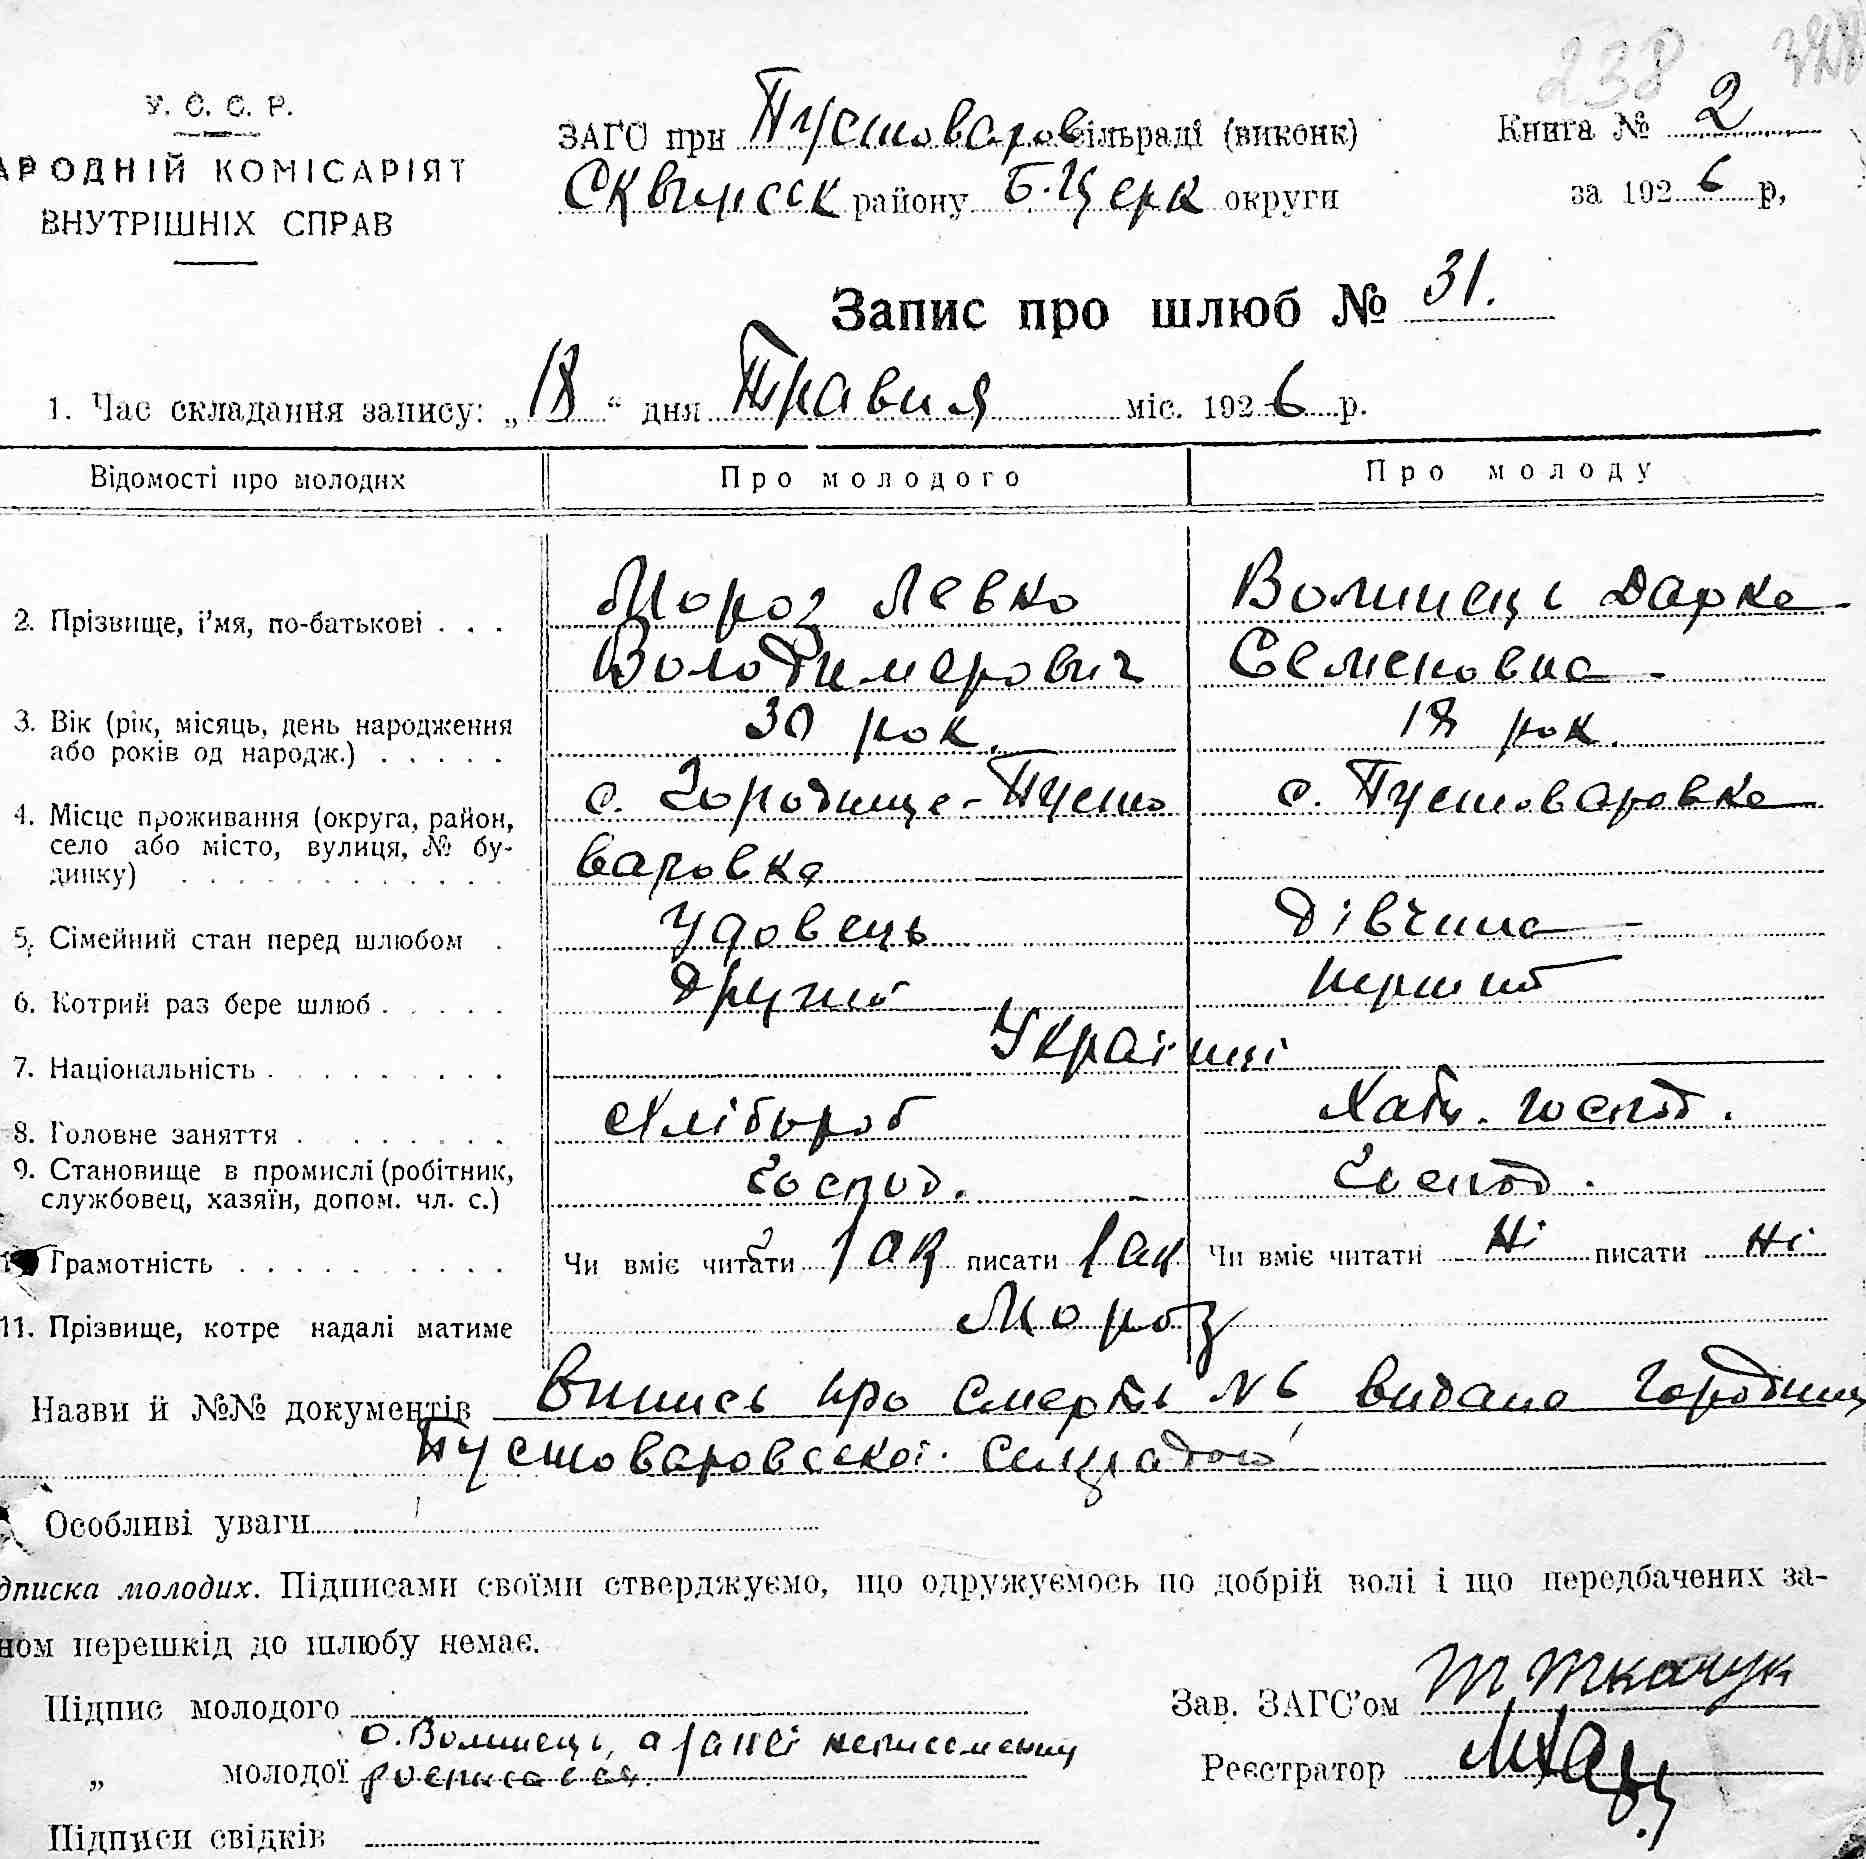 238
У. С. С. Р.
АРОДНІЙ КОМІСАРІЯТ
ВНУТРІШНІХ СПРАВ
ЗАГС при Пустоваров сільраді (виконк)
Сквирськ району Б.Церк округи
Книга № 2
за 1926 р,
Запис про шлюб № 31.
1. Час складання запису: „18“ дня Травня міс. 1926 р.
Відомості про молодих Про молодого Про молоду
2. Прізвище, і'мя, по-батькові . . . Мороз Левко Волинець Дарка
Володимерович Семеновна
3. Вік (рік, місяць, день народження або років од народж.) . . . . . 30 рок. 18 рок.
4. Місце проживання (округа, район, село або місто, вулиця, № будинку) . . . с. Городище-Пусто с. Пустоваровка
варовка
5. Сімейний стан перед шлюбом . Удовець Дівчина
6. Котрий раз бере шлюб . . . . . Другий перший
7. Національність . . . . . . . . . Українці
8. Головне заняття . . . . . . . . Хлібороб Хатн. господ.
9. Становище в промислі (робітник, службовец, хазяїн, допом. чл. с.) Господ. Господ.
Грамотність . . . . . . . . . . Чи вміє читати так писати так Чи вміє читати ні писати ні
11. Прізвище, котре надалі матиме Мороз
Назви й №№ документів Випись про смерть № 6, видана Городищ
Пустоваровської сельрадою
Особливі уваги
дписка молодих. Підписами своїми стверджуємо, що одружуємось по добрій волі і що передбачених за-
ном перешкід до шлюбу немає.
Підпис молодого
Зав. ЗАГС'ом Т Ткачук
О. Волинець, а за неї неписьменну
„ молодої росписався.
Реєстратор
Підписи свідків